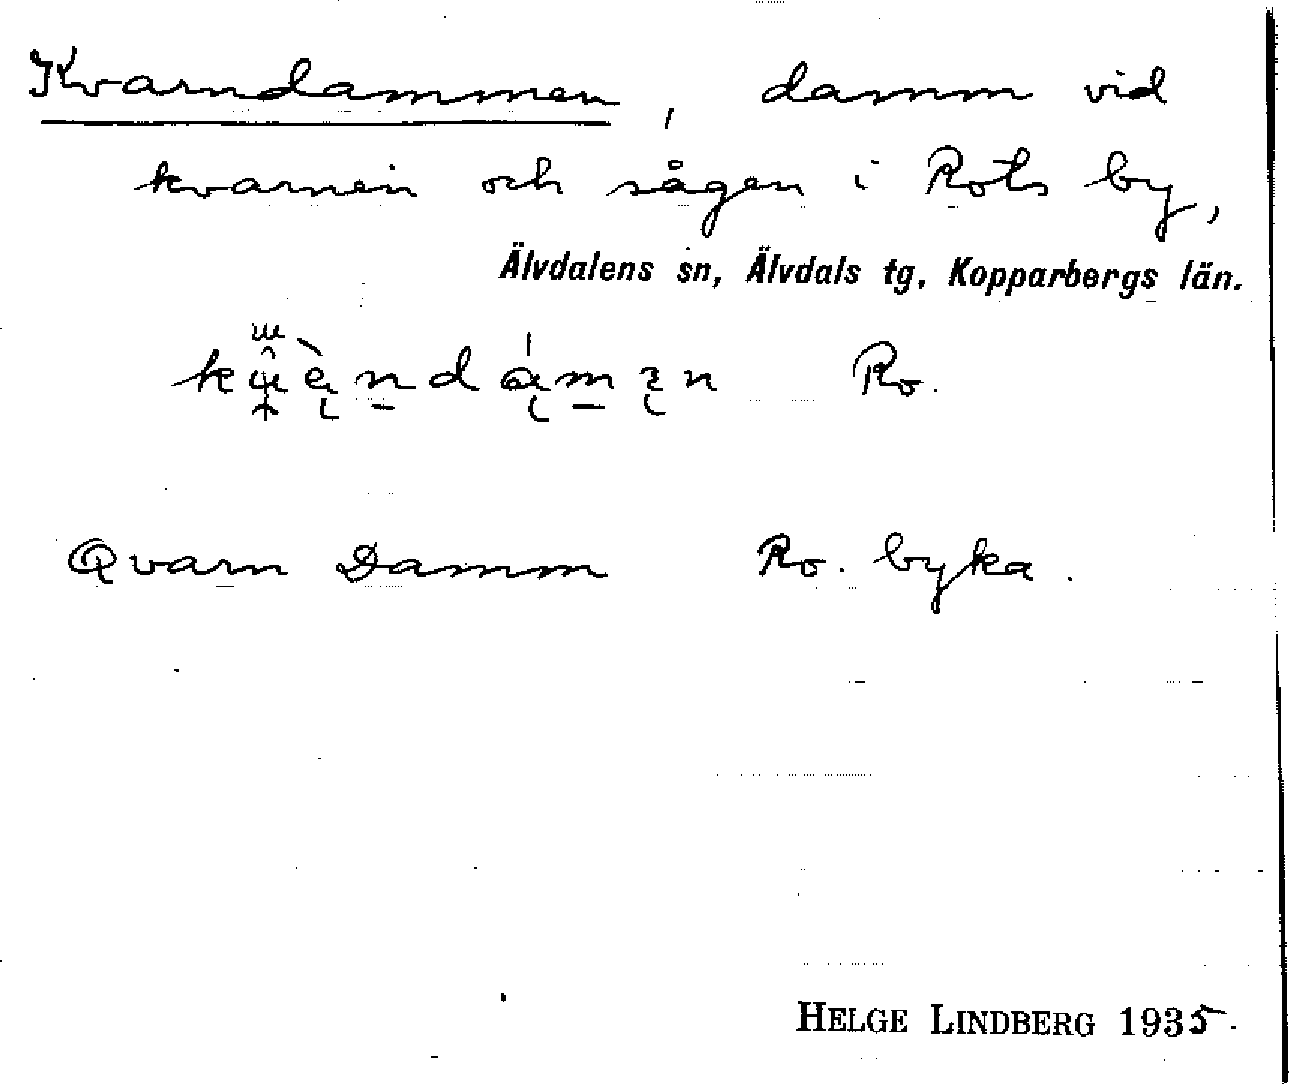 Kvarndammen, damm vid
kvarnen och sågen i Rots by,
Älvdalens sn, Älvdals tg, Kopparbergs län.
Ro.
Qvarn Damm Ro. byka.
HELGE LINDBERG 1935.